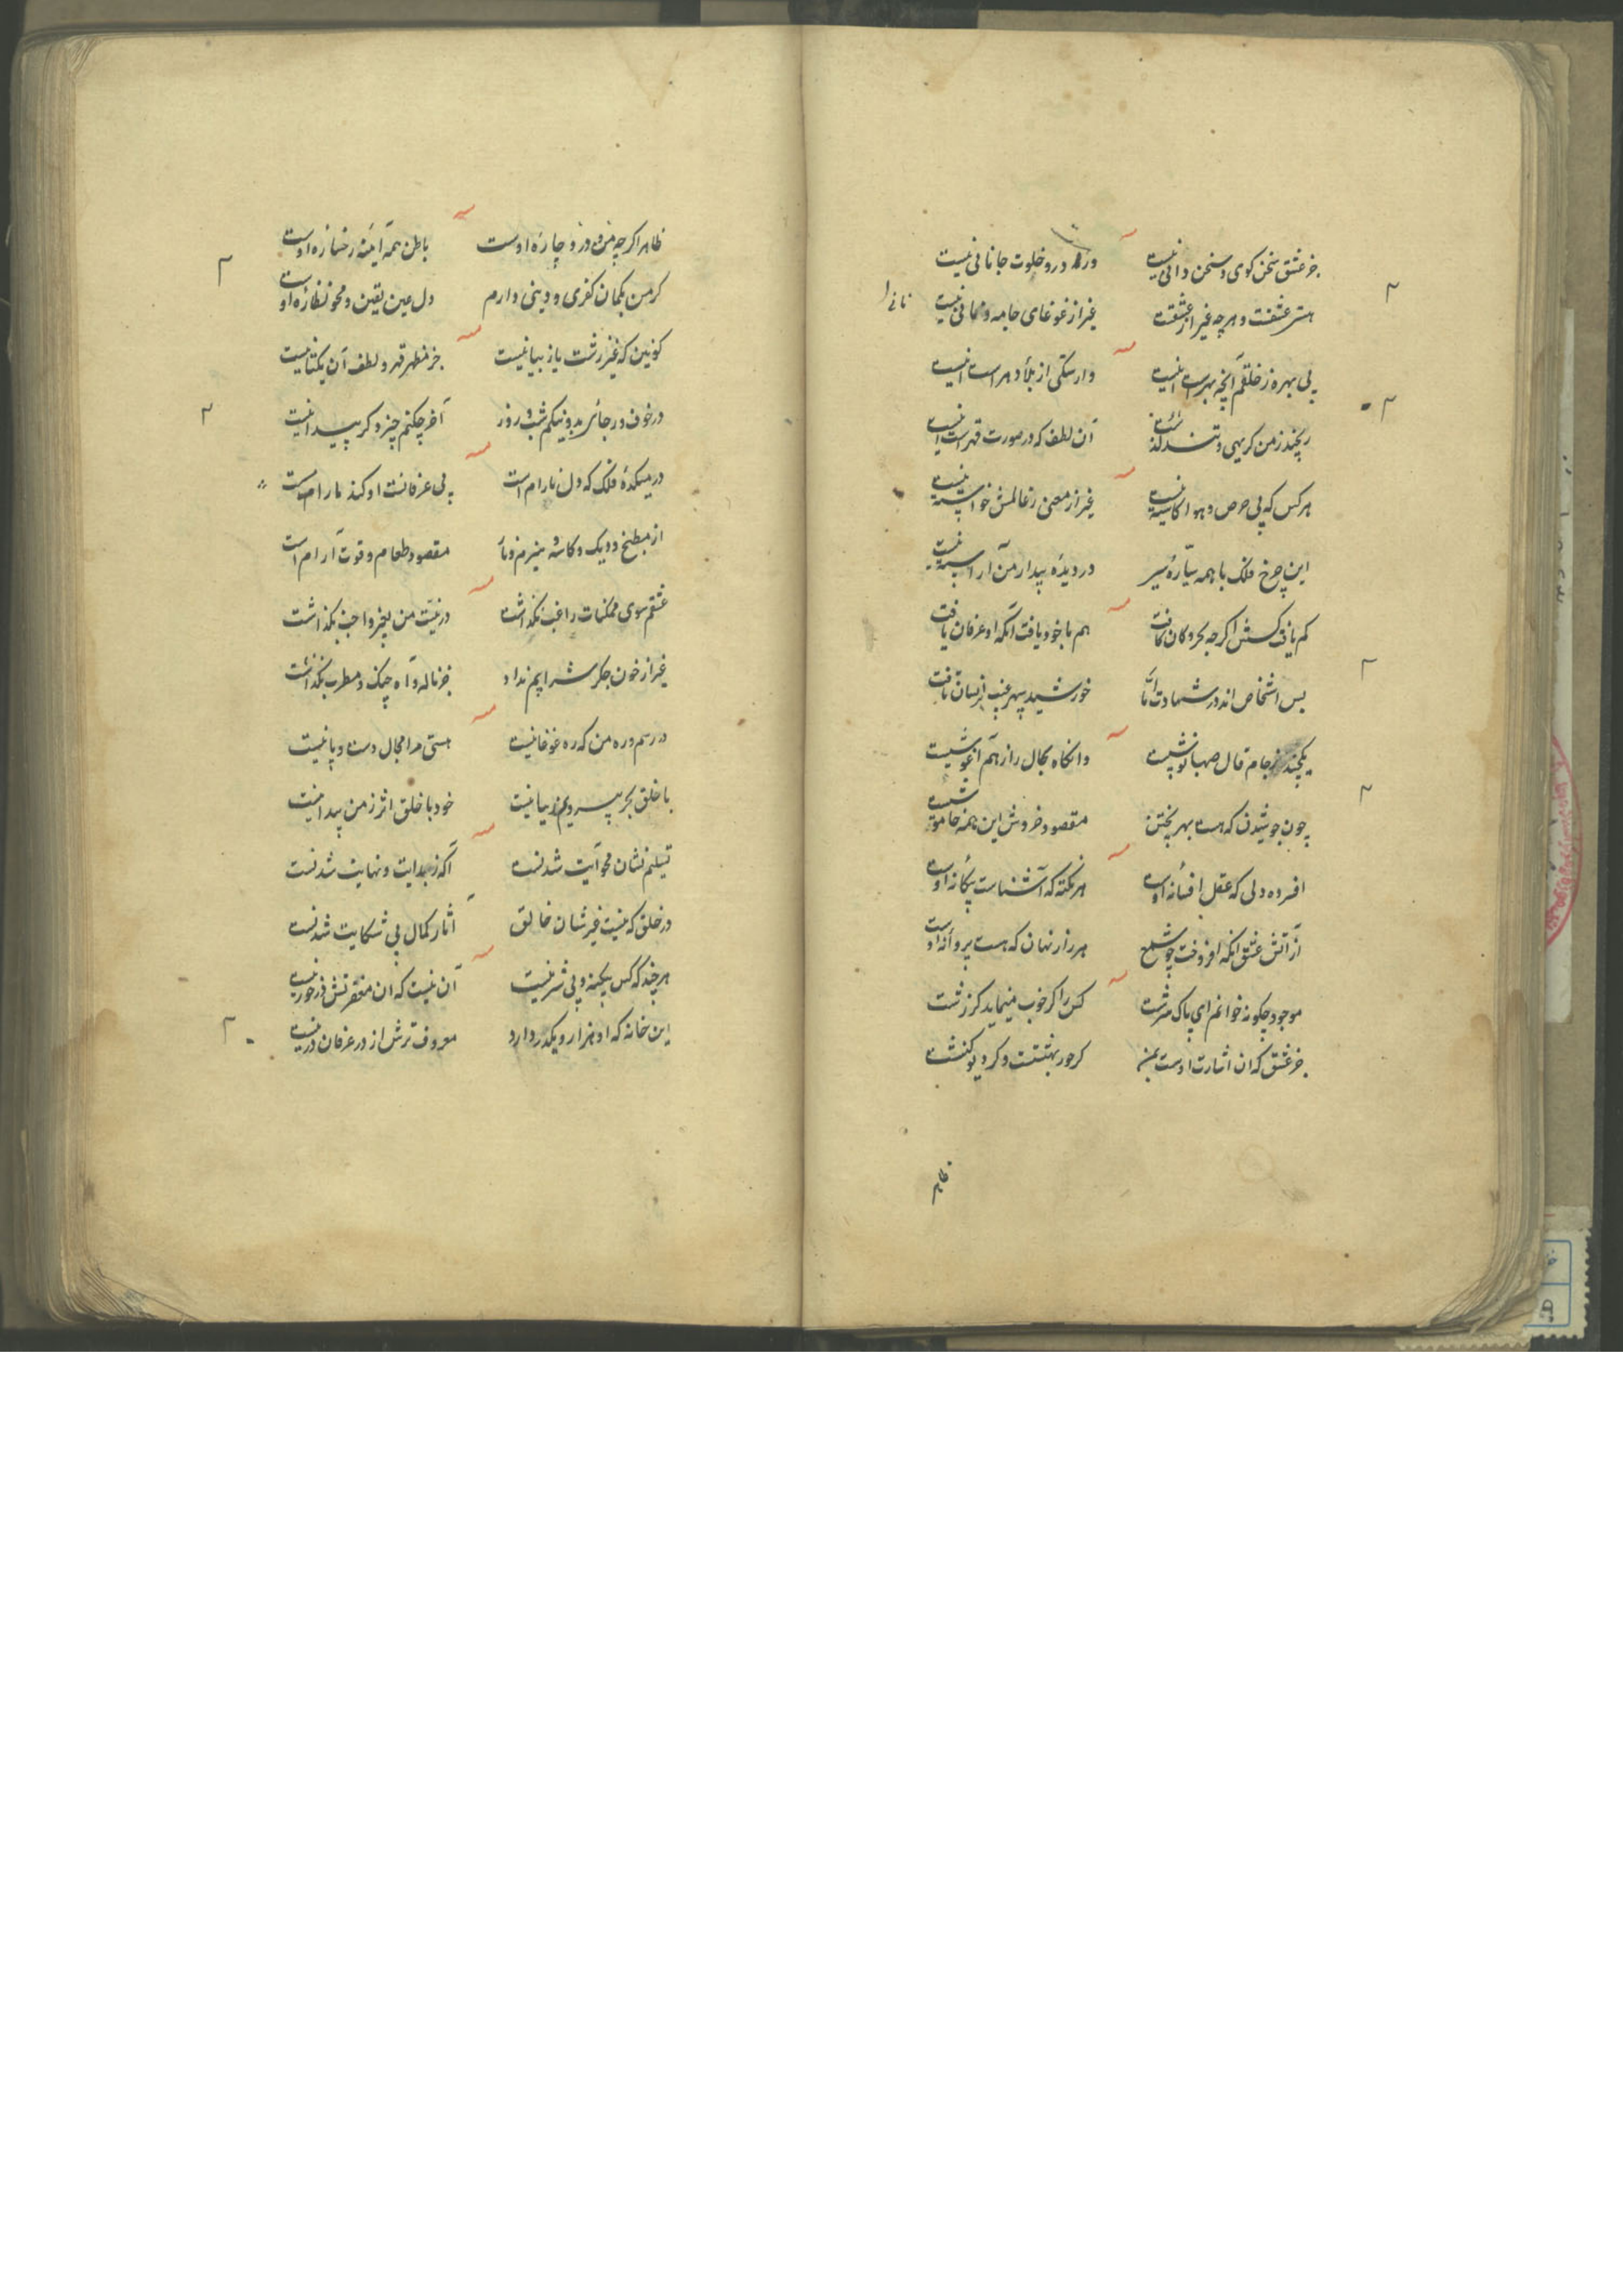 جز عشق سخن کوی و سخن دانی نیست
ور در و خلوت جانانی نیست
هستی عشقست و هر چه غیر از عشقست
غیر از غوغای جامه و نانی نیست
نانی را
بی بهره ز خلقم آنچه بهرست اینست
وارستکی از بلاد هر است اینست
رنجند ز من کریهی و تند
آن لطف که در صورت قهر است اینست
هر کس که پی حرص و هوا کاسته نیست
غیر از معنی ز عالمش خواسته نیست
این چرخ فلک با همه سیاره سیر
در دیده بیدار من آراسته نیست
کم یافت کسش اکر چه بحر و کان یافت
هم با خود یافت آنکه او عرفان یافت
بس اشخاص اند در شهادت اما
خورشید سپهر غیب از انسان تافت
یکچند ز جام قال صهبا نوشیست
وانکاه بحال راز هم آغوشیست
چون جوشیدن که هست بهر پختن
مقصود خروش این همه خاموشیست
افسرده دلی که عقل افسانه اوست
هر نکته که آشناست بیکانه اوست
از آتش عشق آنکه افروخت چو شمع
هر راز نهان که هست پروانه اوست
موجود چکونه خوانم ای پاک سرشت
کس را کر خوب مینماید کر زشت
جز عشق که ان اشارت اوست بمن
کر حور بهشتست و کر دیو کنشت
ظاهر
ظاهر اکر چه من و در و چاره اوست
باطن همه آینه رخساره اوست
کر من بکمان کفری و دینی دارم
دل عین یقین و محو نظاره اوست
کونین که غیر زشت یا زیبا نیست
جز مظهر قهر و لطف آن یکتا نیست
در خوف و رجای بد و نیکم شب و روز
آخر چکنم چیز دکر پیدا نیست
در میکده فلک که دل نارام است
بی عرفانست او کند نارام است
از مطبخ و دیک و کاسه
مقصود طعام و قوت آرام است
عشقم سوی ممکنات راغب نکذاشت
در نیت من بجز واجب نکذاشت
غیر از خون جکر شرابم نداد
جز ناله و آه چنک و مطرب نکذاشت
در رسم و ره من که ره غوغا نیست
هستی مرا مجال دست و پا نیست
با خلق بحر پیرویم زیبا نیست
خود با خلق اثر ز من پیدا نیست
تسلیم نشان محو آیت شدنست
آکه ز بدایت و نهایت شدنست
در خلق که نیست غیر شان خالق
آثار کمال بی شکایت شدنست
هر چند که کس بکینه و بی شر نیست
آن نیست که ان مغفرتش در خور نیست
این خانه که او هزار و یکدر دارد
معروف ترش از در عرفان در نیست